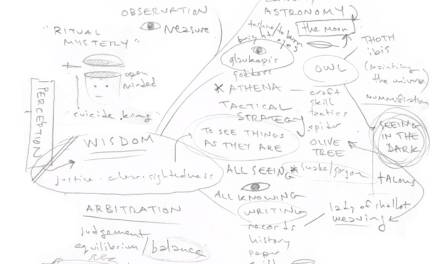 OBSERVATION
measure
"RITUAL
MYSTERY"
open
minded
suicide
PERCEPTION
WISDOM
justice
ARBITRATION
judgement
equilibrium/balance
ASTRONOMY
the moon
glaukopis
ATHENA
TACTICAL
STRATEGY
TO SEE THINGS
AS THEY ARE
ALL SEEING
ALL KNOWING
WRITING
records
history
paper
OWL
craft
skill
tactics
spider
OLIVE
TREE
snake/gorgon
THOTH
ibis
the universe)
mummification
SEEING
IN THE
DARK
talons
lady of shallot
weaving